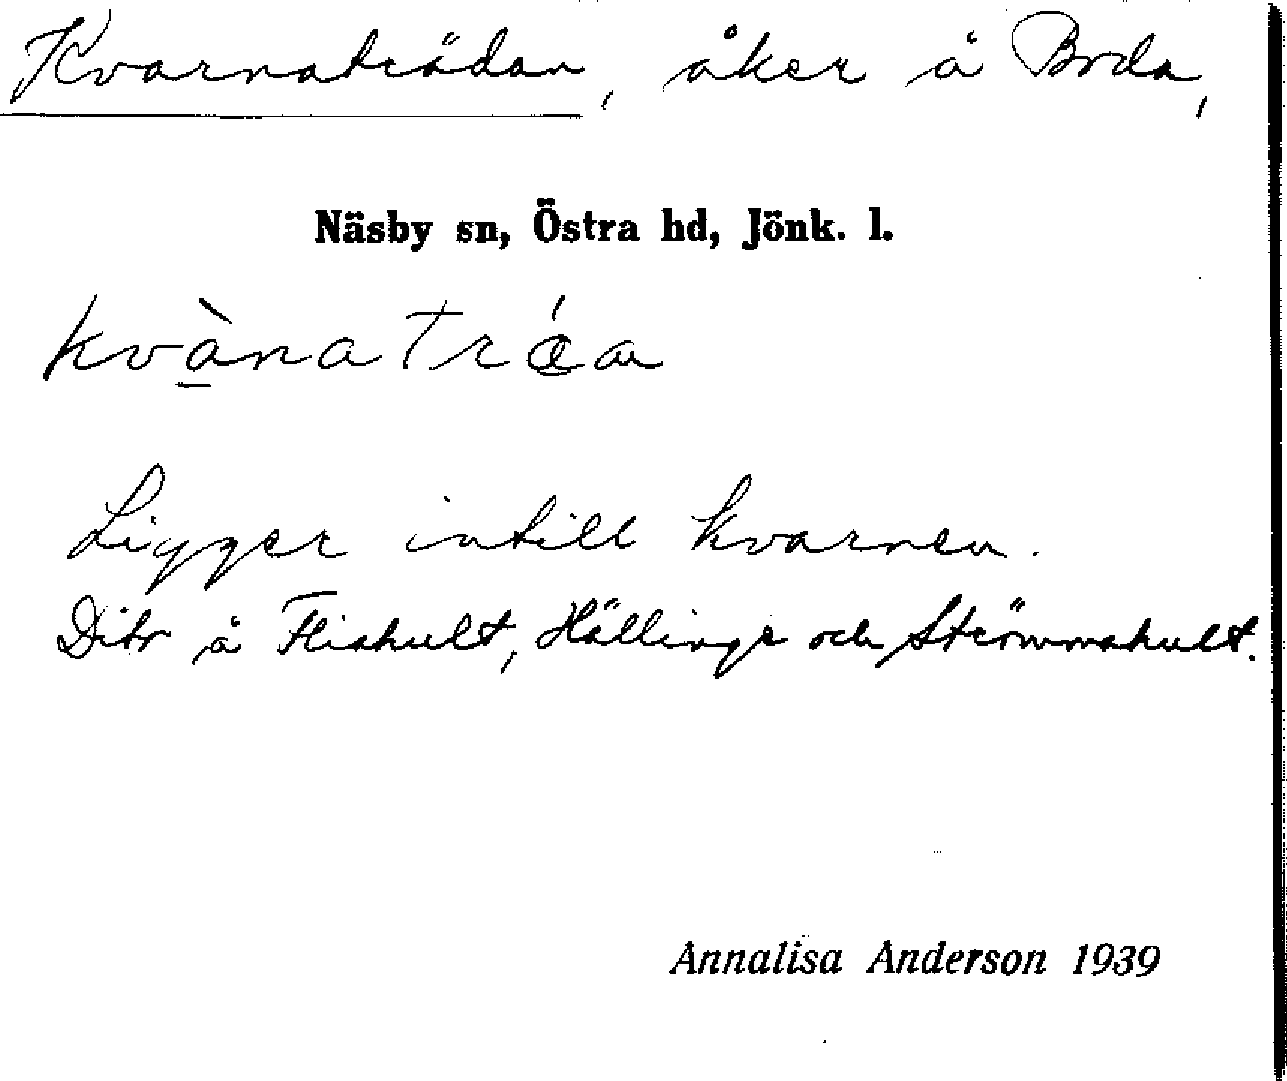 Kvarnaträdan, åker å Boda,
Näsby sn, Östra hd, Jönk. l.
kvà̱natrǽan
Ligger intill kvarnen.
Dito å Fliahult, Hällinge och Strömmahult.
Annalisa Anderson 1939